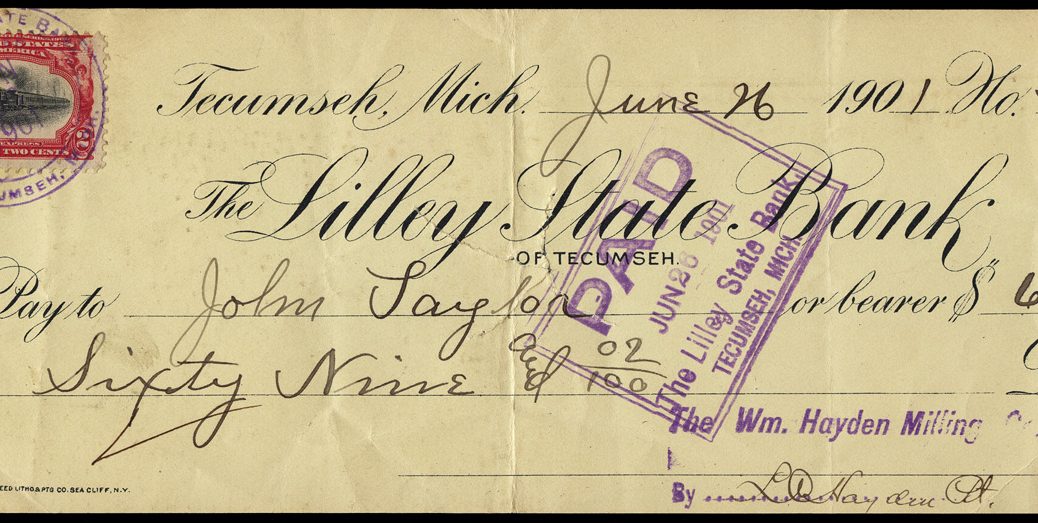 ATE BAN
UNITED STATES
AMERICA
1901
TWO CENTS
TECUMSEH,
Tecumseh, Mich. June 26 1901 No.
The Lilley State Bank
OF TECUMSEH.
PAID
JUN 26 1901
The Lilley State Bank
TECUMSEH, MICH.
Pay to John or bearer $ 6
Sixty Nine and 02/100
The Wm. Hayden Milling Co.
By Hayden
EED LITHO & PTG CO. SEA CLIFF, N.Y.